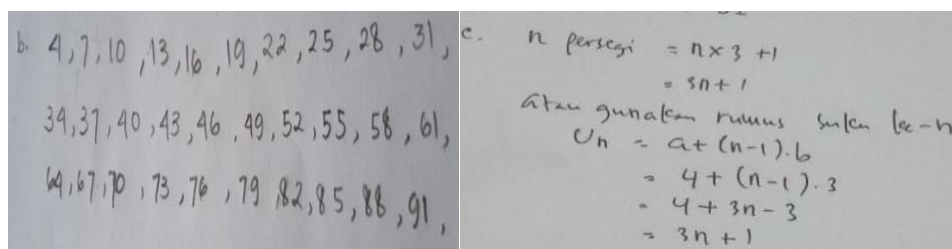 b. 4,7,10,13,16,19,22,25,28,31,
34,37,40,43,46,49,52,55,58,61,
64,67,70,73,76,79,82,85,88,91,
c. n persegi = n×3 +1
= 3n+1
atau gunakan rumus suku ke-n
Un = a+(n-1).b
= 4+(n-1).3
= 4+3n-3
= 3n+1